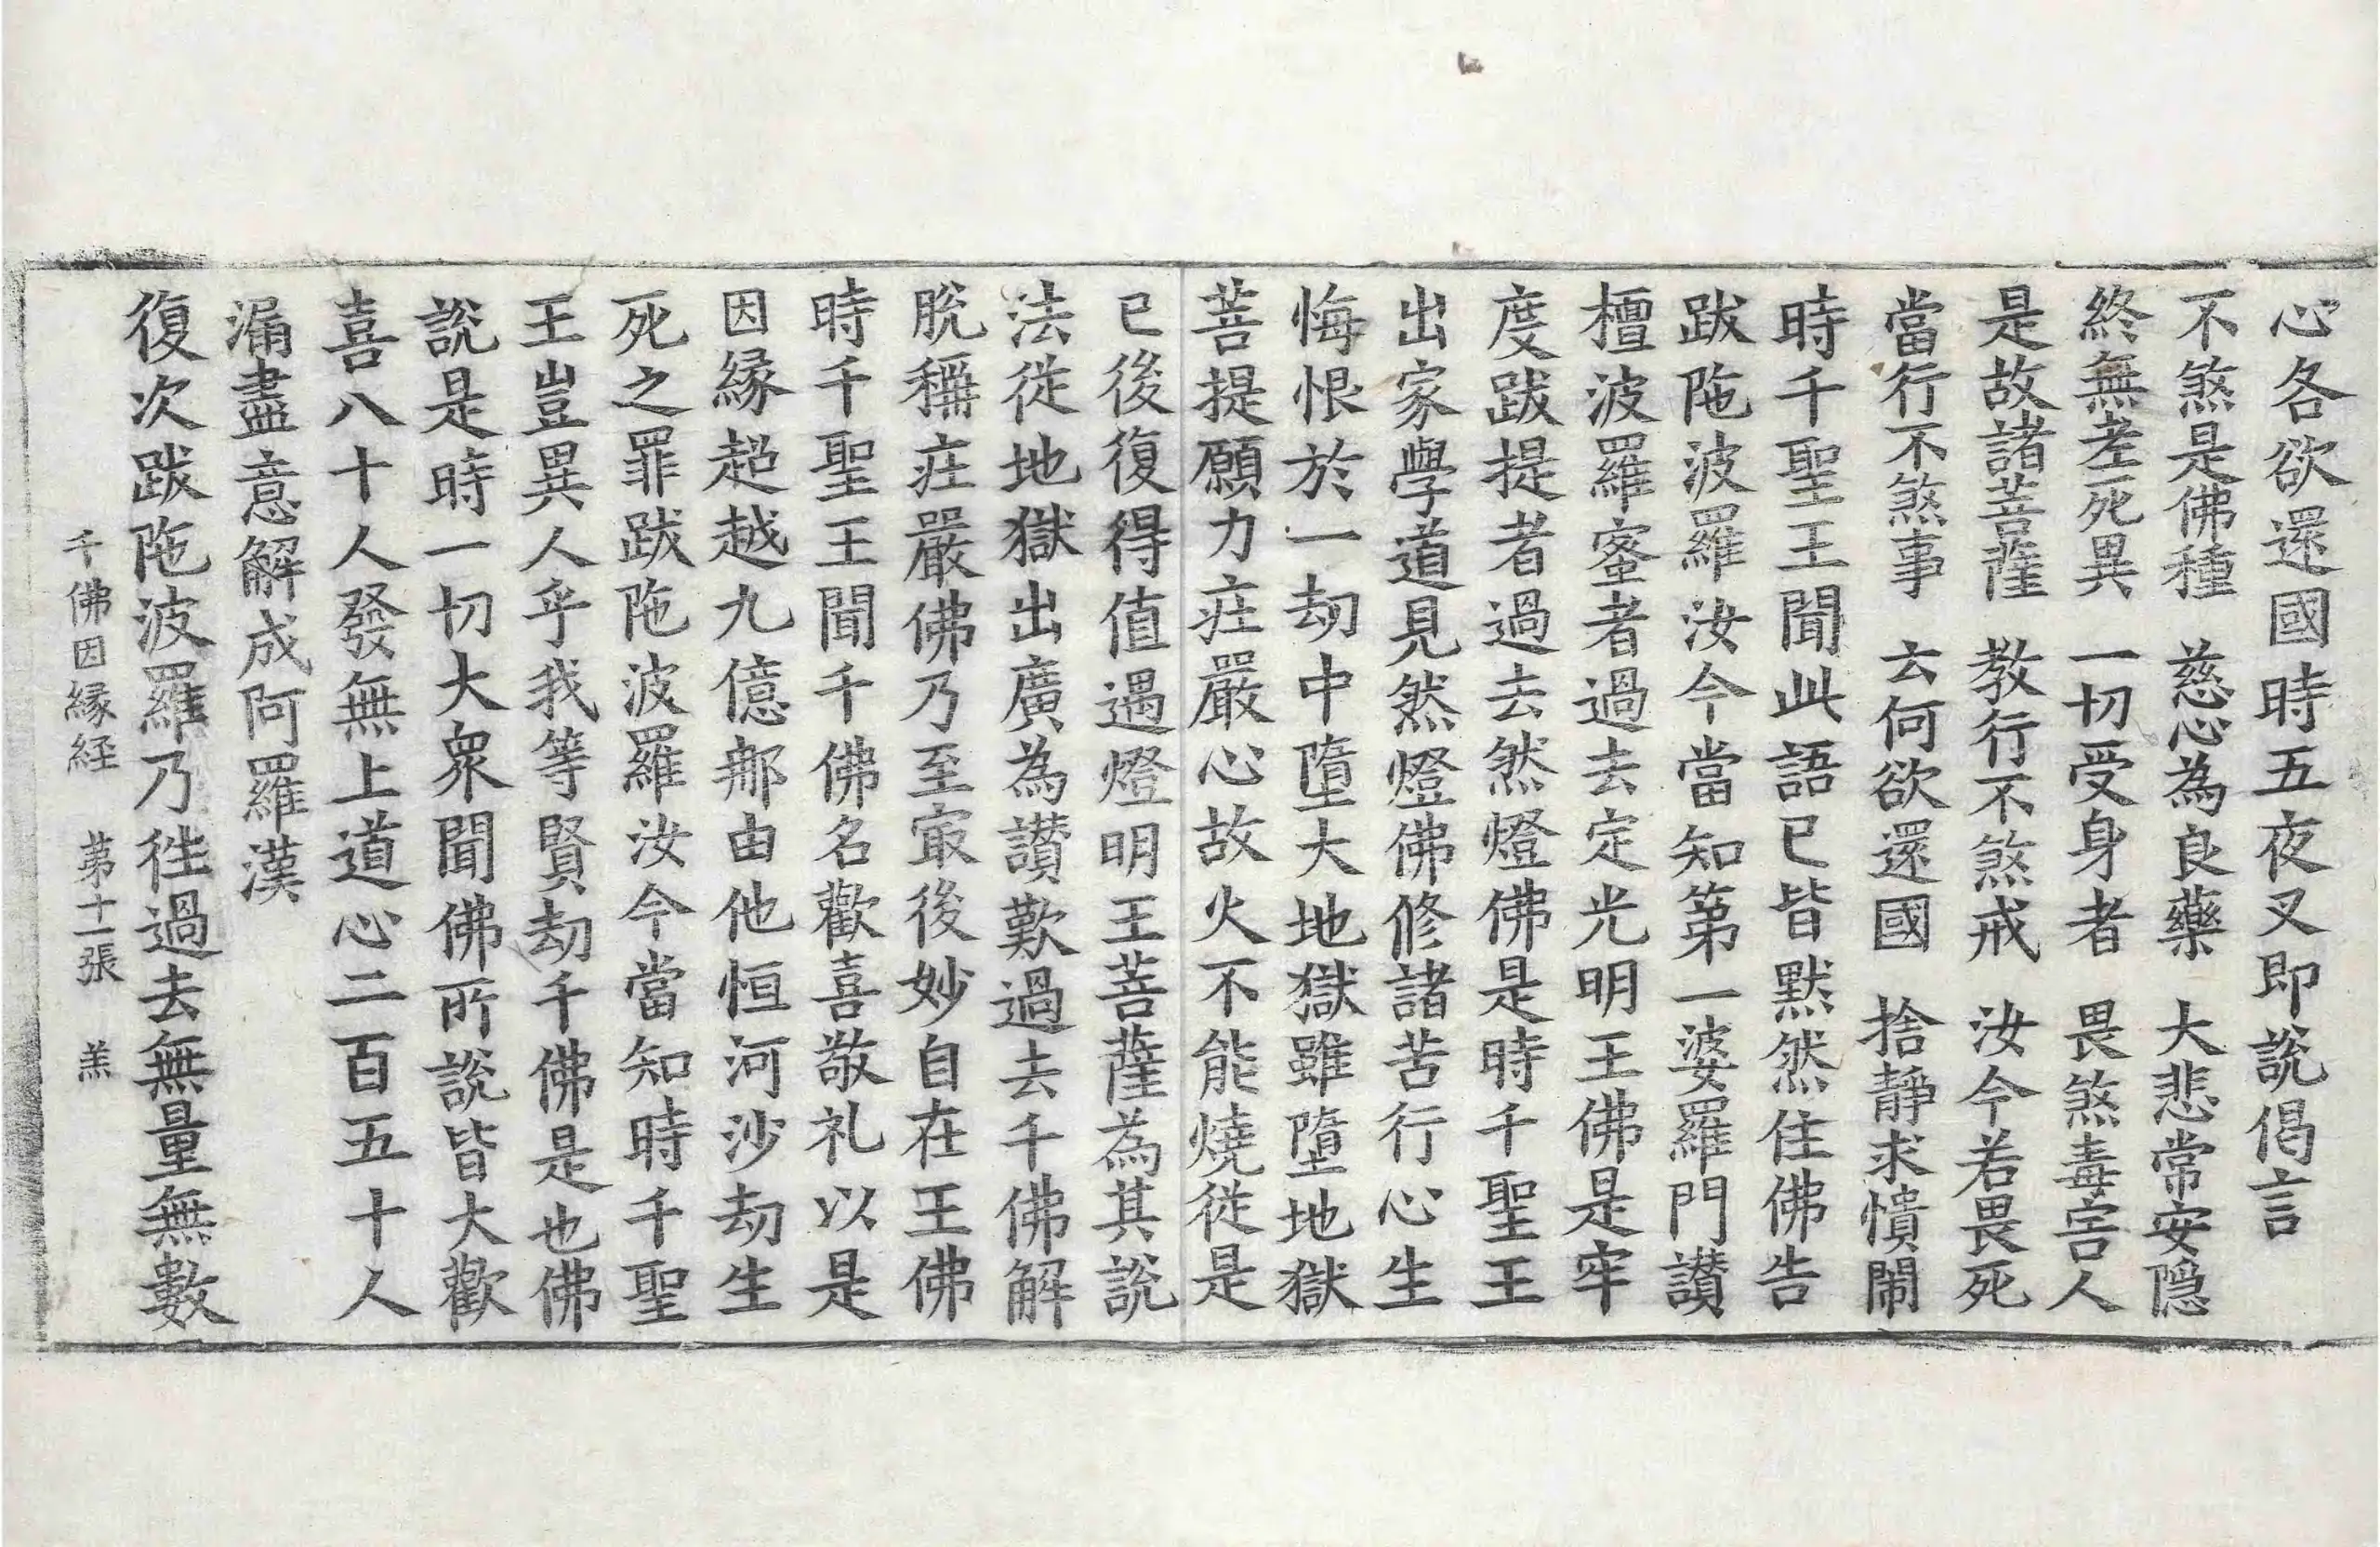 心各欲還國時五夜叉即說偈言
不煞是佛種　慈心為良藥　大悲常安隱
終無老死異　一切受身者　畏煞毒害人
是故諸菩薩　教行不煞戒　汝今若畏死
當行不煞事　云何欲還國　捨靜求憒閙
時千聖王聞此語已皆默然住佛告
跋陁波羅汝今當知第一婆羅門讃
檀波羅蜜者過去定光明王佛是牢
度跋提者過去然燈佛是時千聖王
出家學道見然燈佛修諸苦行心生
悔恨於一劫中墮大地獄雖墮地獄
菩提願力莊嚴心故火不能燒從是
已後復得值遇燈明王菩薩為其說
法從地獄出廣為讃歎過去千佛解
脫稱莊嚴佛乃至㝡後妙自在王佛
時千聖王聞千佛名歡喜敬礼以是
因緣超越九億那由他恒河沙劫生
死之罪跋陁波羅汝今當知時千聖
王豈異人乎我等賢劫千佛是也佛
說是時一切大衆聞佛所說皆大歡
喜八十人發無上道心二百五十人
漏盡意解成阿羅漢
復次跋陁波羅乃往過去無量無數
千佛因緣経　第十一張　羔